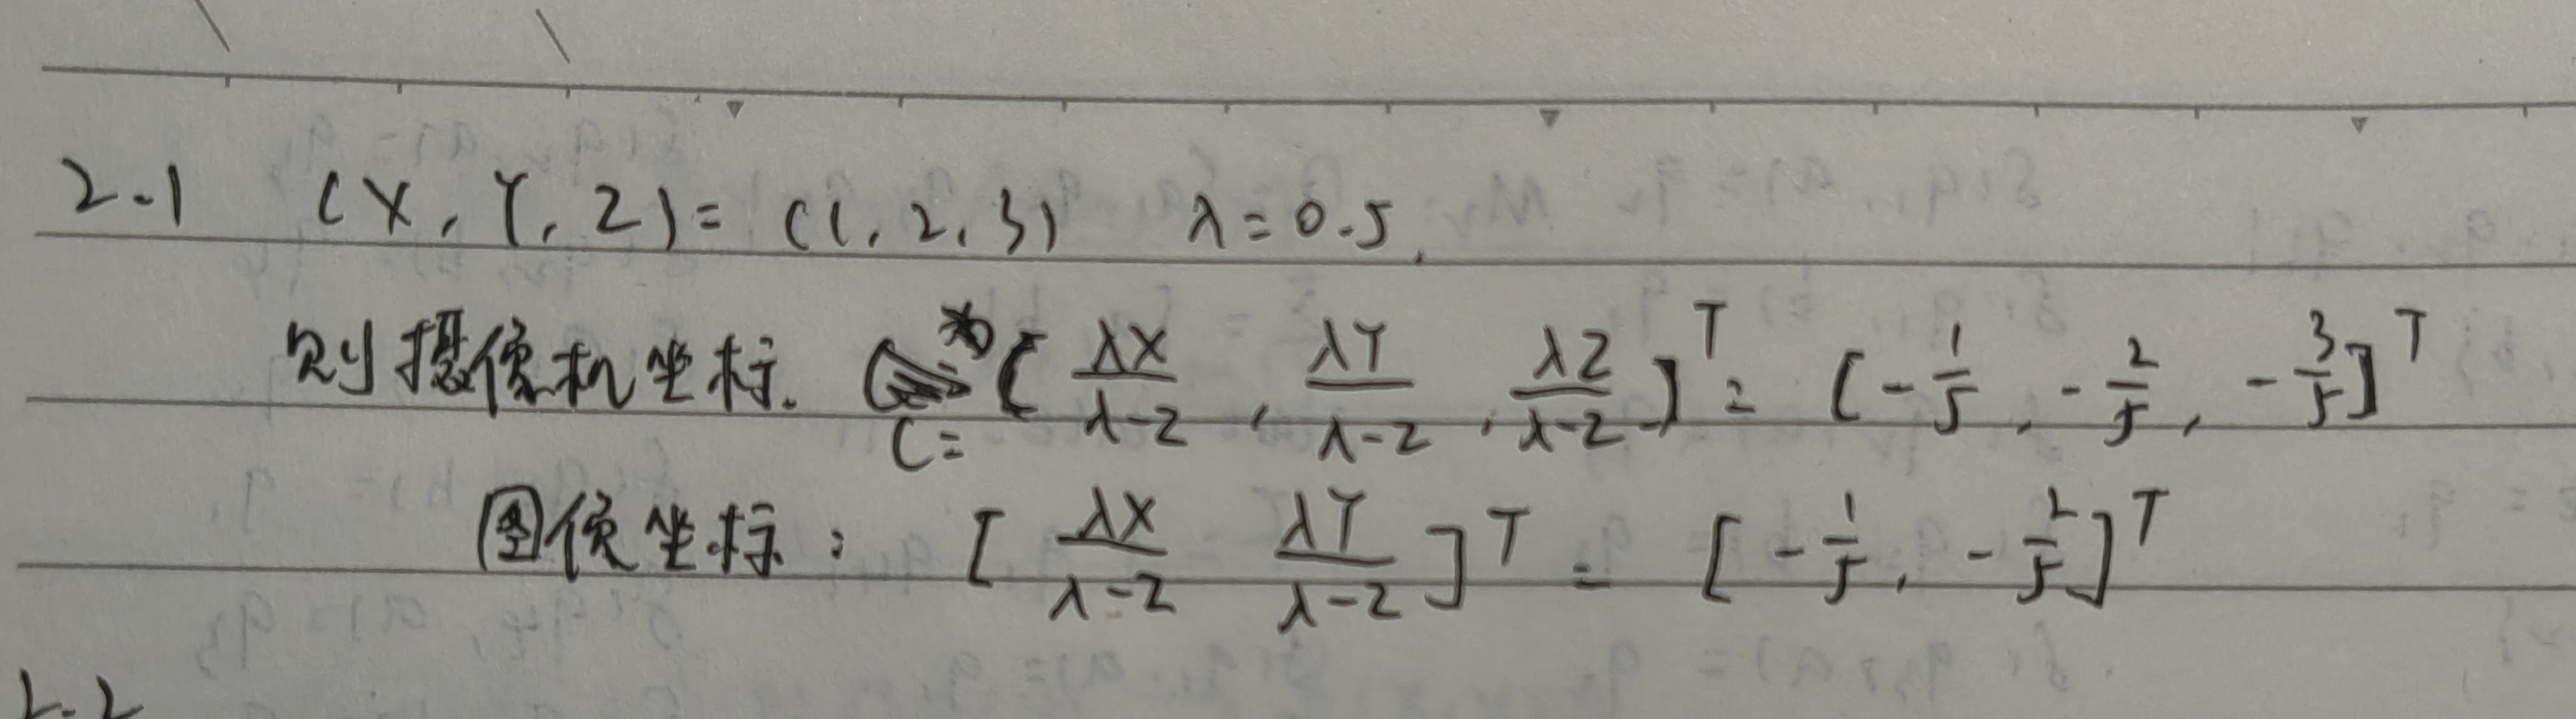 2-1 (X, Y, Z) = (1, 2, 3) λ=0.5,
则摄像机坐标. C= [λX/(λ-Z), λY/(λ-Z), λZ/(λ-Z)]ᵀ = [-1/5, -2/5, -3/5]ᵀ
图像坐标: [λX/(λ-Z) λY/(λ-Z)]ᵀ = [-1/5, -2/5]ᵀ
2-2